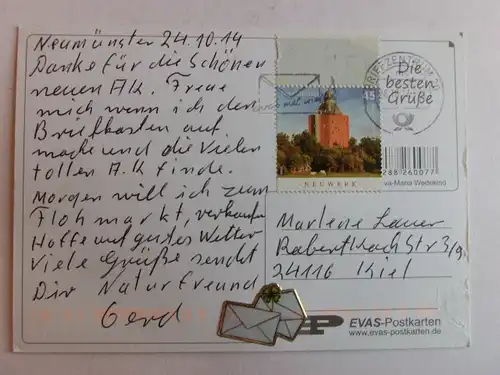 Neumünster 24.10.14
Danke für die Schönen
neuen A.K. Freue
mich wenn ich den
Briefkasten auf
mache und die Vielen
tollen A.K finde.
Morgen will ich zum
Flohmarkt, verkaufe
Hoffe auf gutes Wetter
Viele Grüße sendet
Dir Naturfreund
Gerd
BRIEFZENTRUM
Die
besten
Grüße
45
NEUWERK
288 260077
va-Maria Wedekind
Marlene Lauer
Robert Koch Str 3/g.
24116 Kiel
EVAS-Postkarten
www.evas-postkarten.de